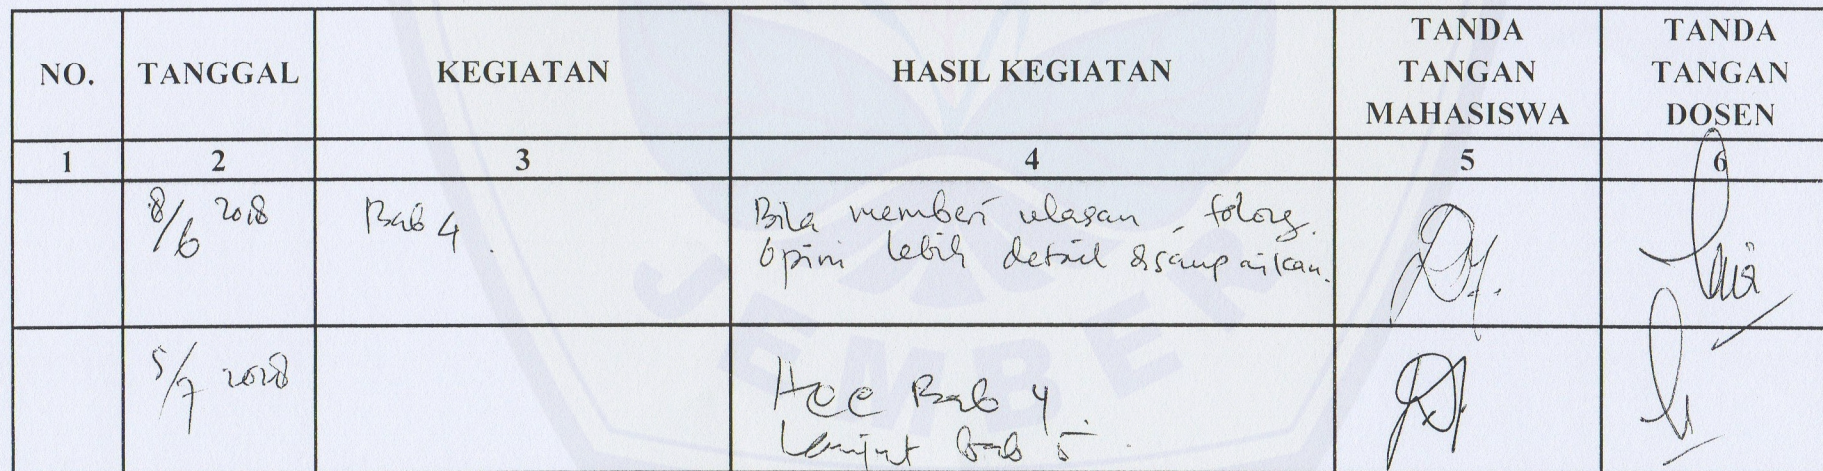 NO. TANGGAL KEGIATAN HASIL KEGIATAN TANDA TANGAN MAHASISWA TANDA TANGAN DOSEN
1 2 3 4 5 6
8/6 2018 Bab 4. Bila memberi ulasan, tolong.
Opini lebih detail disampaikan.
5/7 2018 Acc Bab 4.
Lanjut bab 5.
JEMBER